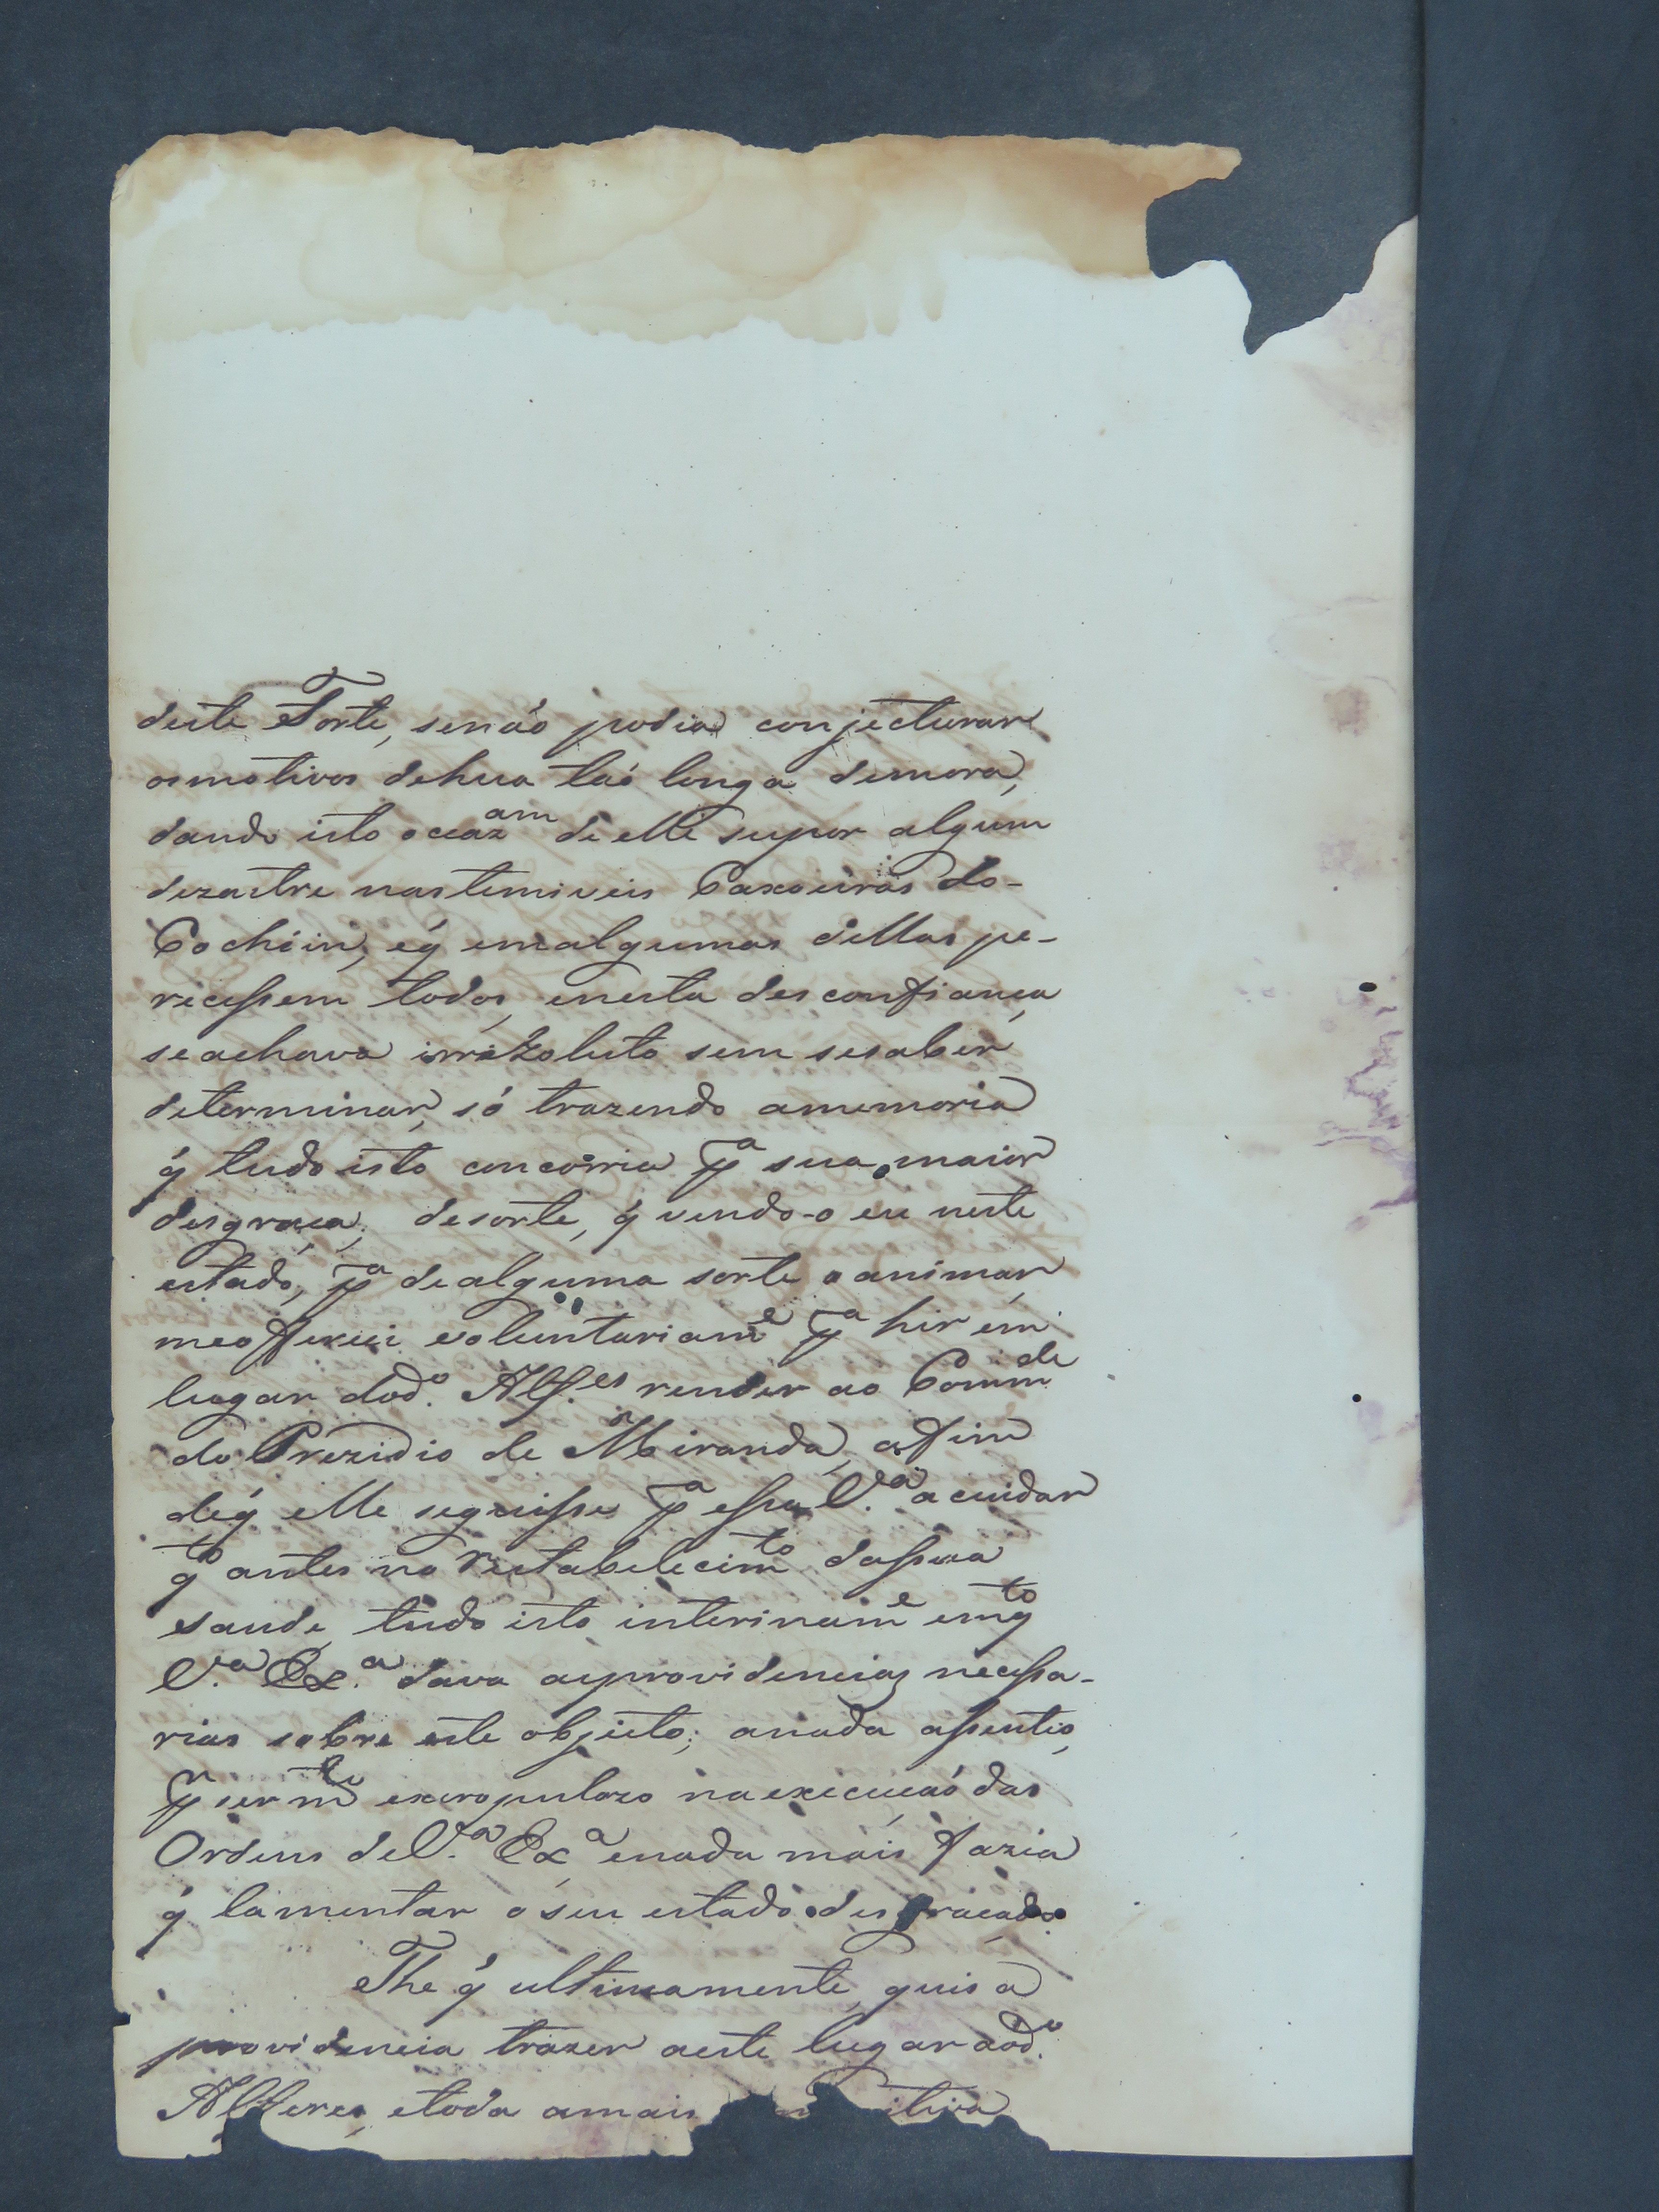 deste Forte, senaõ podia conjecturar
osmotivos dehua taõ longa demora,
dando isto occazam de elle supor algum
dezastre nastemiveis Caxoeiras do-
Cochiin, eq̃ emalgumas dellas pe-
recessem todos, enesta desconfiança,
seachava irrezoluto sem sesaber
determinar, só trazendo amemoria
q̃ tudo isto concorria pª sua maior
desgraça; desorte, q̃ vendo-o eu neste
estado, pª dealguma sorte o animar,
meofferecí voluntariamᵉ pª hir em
lugar dodº. Alfᵉˢ render ao Commᵈᵉ
do Prezidio de Miranda, afim
deq̃ elle seguisse pª essa V.ª acuidar
qᵗᵒ antes no restabelecimᵗᵒ dassua
saude, tudo isto interinamᵉ emqᵗᵒ
V.ª Ex.ª dava asprovidencias necessa-
rias sobre este objecto; anada assentio,
pʳ ser mᵗᵒ escropulozo naexecuçaõ das
Ordens deV.ª Exª enada mais fazia
q̃ lamentar oseu estado desgraçado.
The q̃ ultimamente, quis a
providencia trazer aeste lugar aodº.
Alferes, etoda amais itiva